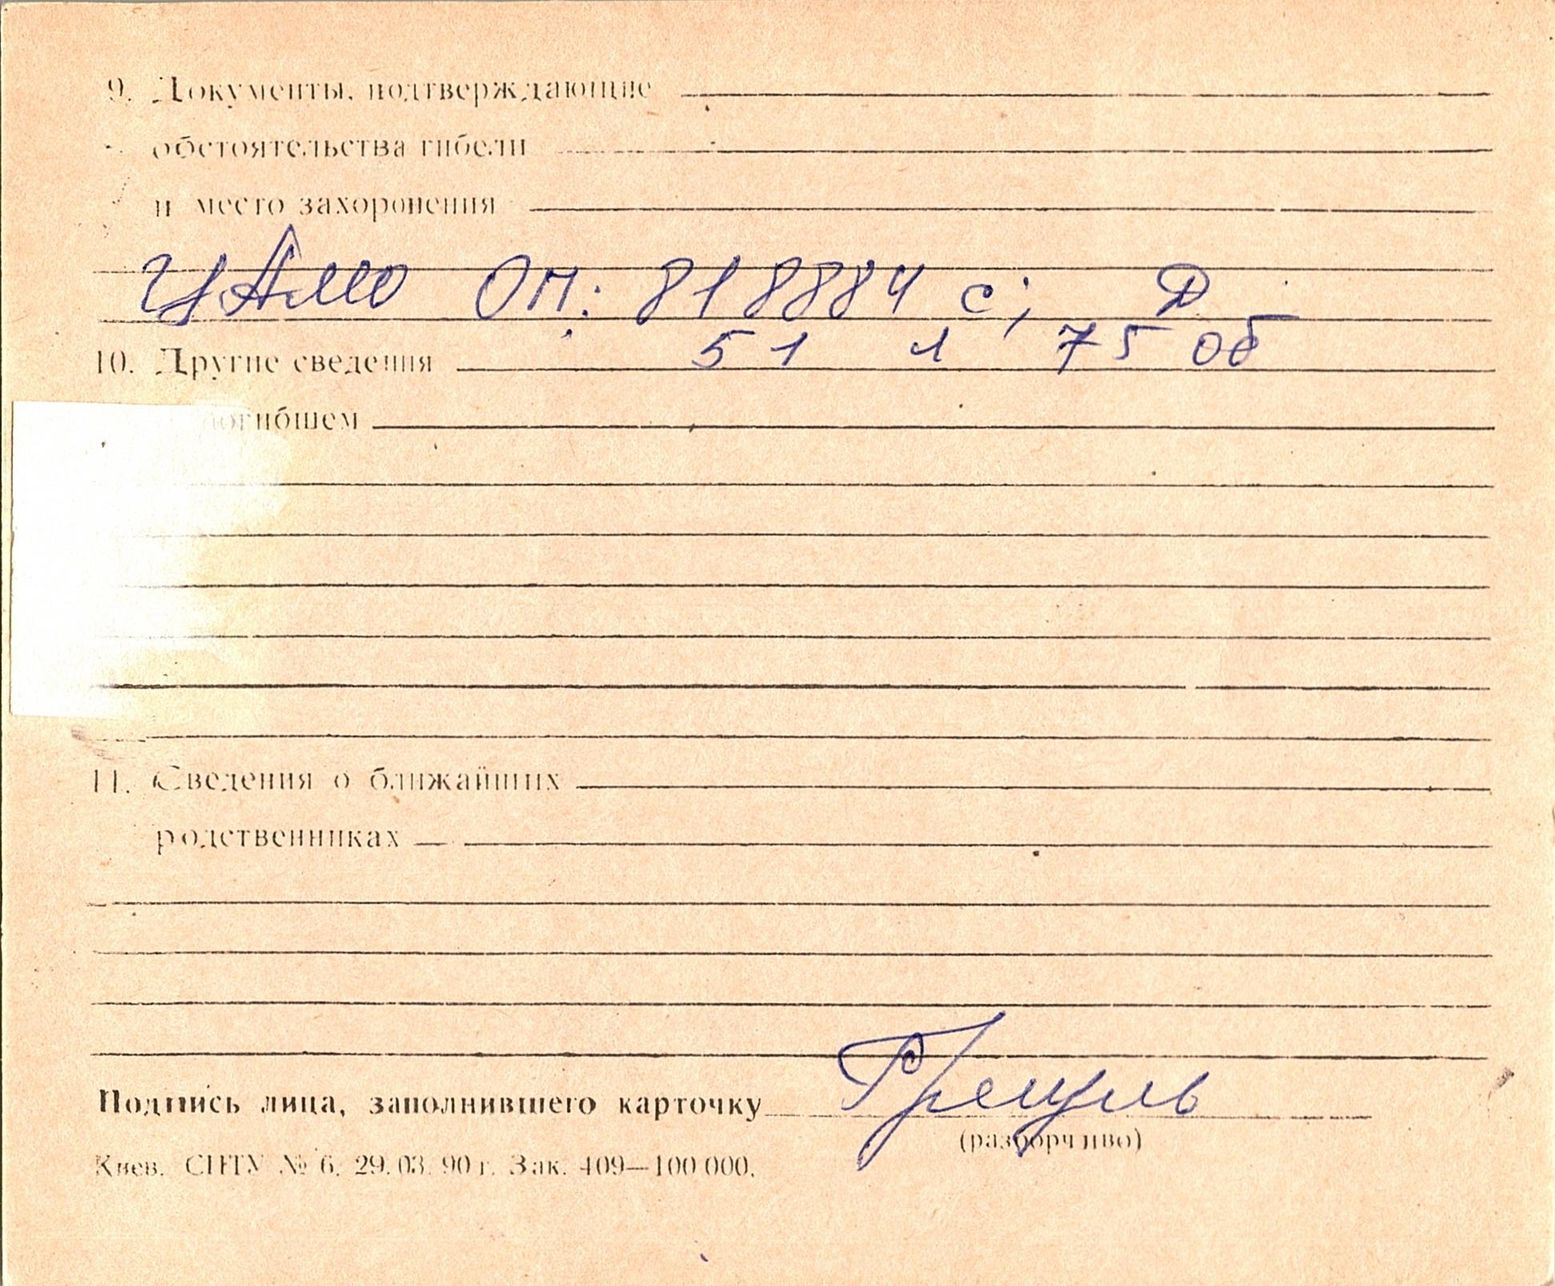 9. Документы, подтверждающие
обстоятельства гибели
и место захоронения
ЦАМО ОП: 818884 с; Д
51 1 75 Об
10. Другие сведения
погибшем
11. Сведения о ближайших
родственниках
Подпись лица, заполнившего карточку
(разборчиво)
Киев. СПТУ № 6. 29.03.90 г. Зак. 409—100 000.